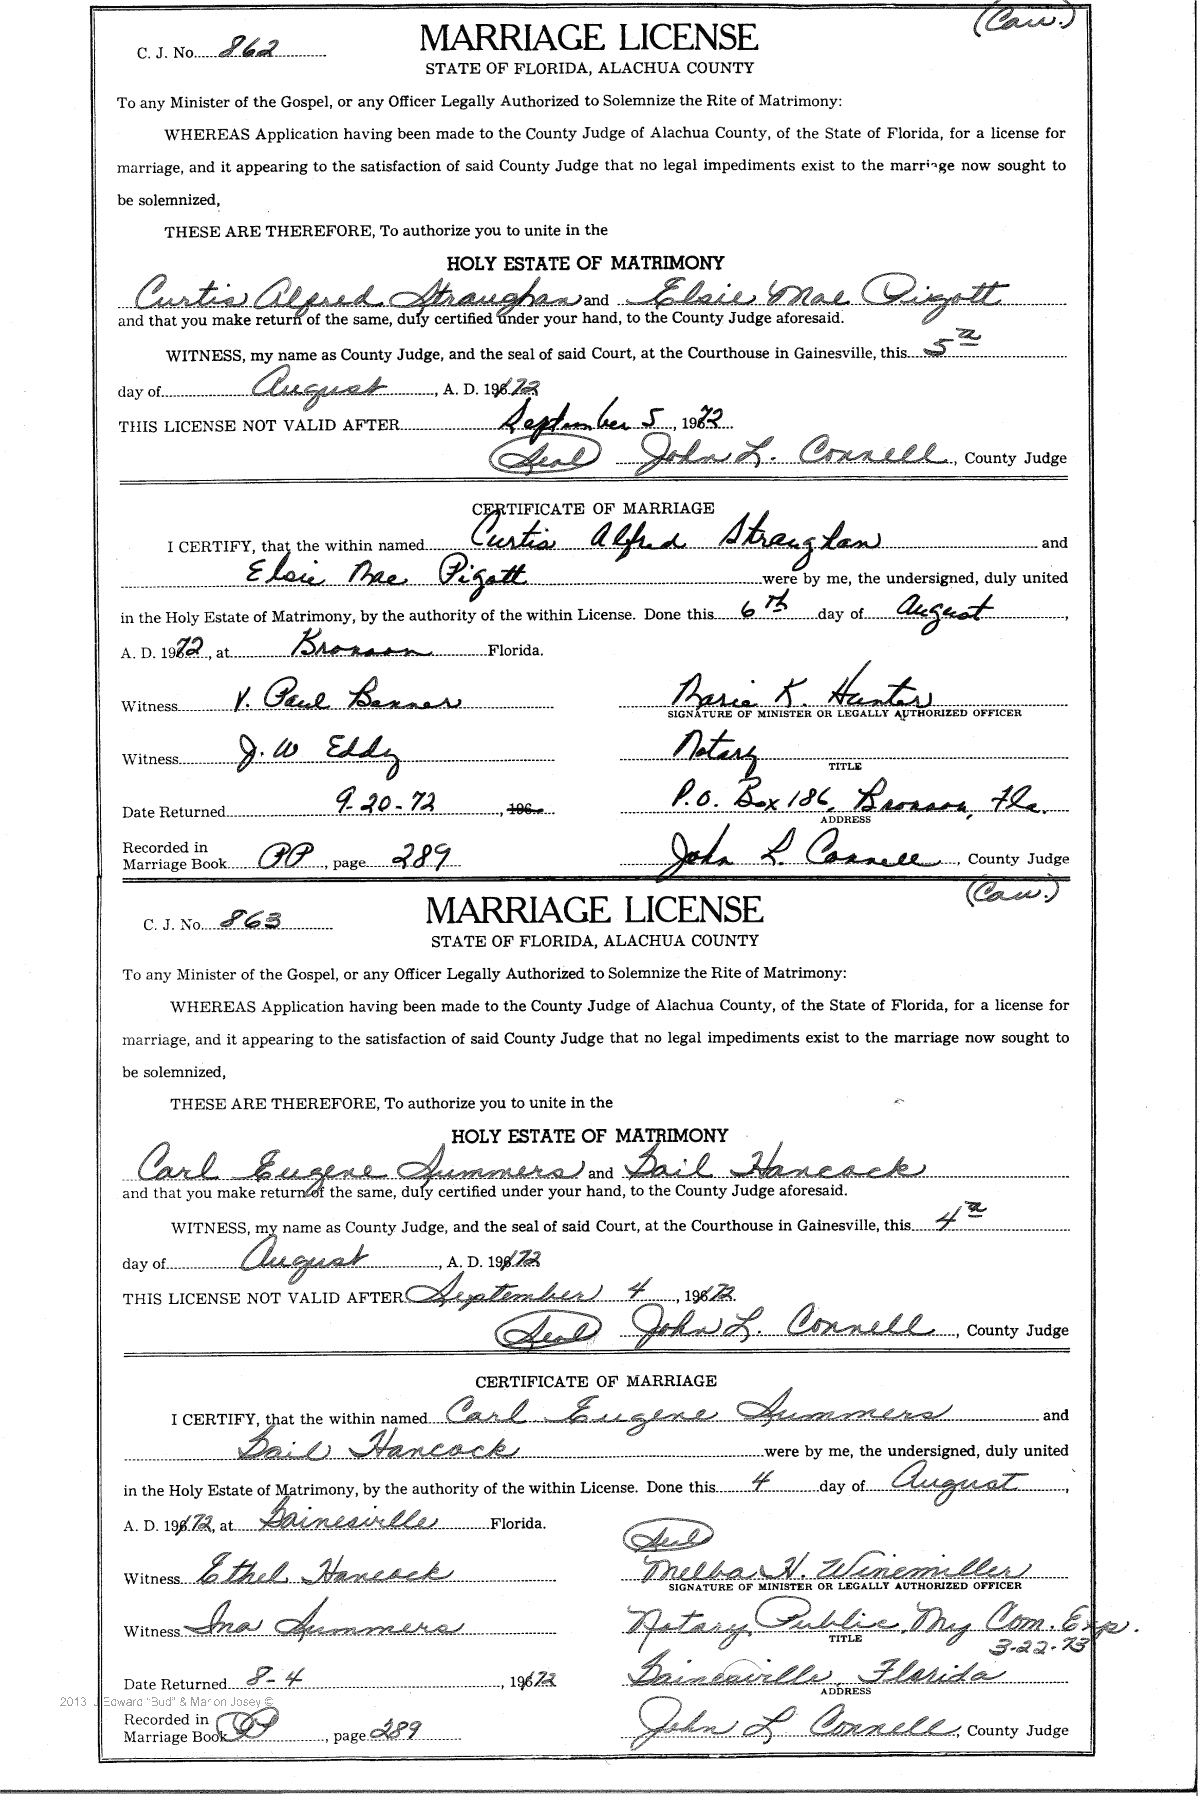 (Cau.)
C. J. No. 862
MARRIAGE LICENSE
STATE OF FLORIDA, ALACHUA COUNTY
To any Minister of the Gospel, or any Officer Legally Authorized to Solemnize the Rite of Matrimony:
WHEREAS Application having been made to the County Judge of Alachua County, of the State of Florida, for a license for
marriage, and it appearing to the satisfaction of said County Judge that no legal impediments exist to the marriage now sought to
be solemnized,
THESE ARE THEREFORE, To authorize you to unite in the
HOLY ESTATE OF MATRIMONY
Curtis Alfred Straughan and Elsie Mae Pigott
and that you make return of the same, duly certified under your hand, to the County Judge aforesaid.
WITNESS, my name as County Judge, and the seal of said Court, at the Courthouse in Gainesville, this 5th
day of August, A. D. 1972
THIS LICENSE NOT VALID AFTER September 5, 1972
(Seal) John L. Connell, County Judge
CERTIFICATE OF MARRIAGE
I CERTIFY, that the within named Curtis Alfred Straughan and
Elsie Mae Pigott were by me, the undersigned, duly united
in the Holy Estate of Matrimony, by the authority of the within License. Done this 6th day of August,
A. D. 1972, at Bronson Florida.
Witness V. Paul Benner Marie K. Hunter
SIGNATURE OF MINISTER OR LEGALLY AUTHORIZED OFFICER
Witness J. W Eddy Notary
TITLE
Date Returned 9-20-72, 196 P.O. Box 186, Bronson, Fla.
ADDRESS
Recorded in
Marriage Book PP, page 289 John L. Connell, County Judge
(Cau.)
C. J. No. 863
MARRIAGE LICENSE
STATE OF FLORIDA, ALACHUA COUNTY
To any Minister of the Gospel, or any Officer Legally Authorized to Solemnize the Rite of Matrimony:
WHEREAS Application having been made to the County Judge of Alachua County, of the State of Florida, for a license for
marriage, and it appearing to the satisfaction of said County Judge that no legal impediments exist to the marriage now sought to
be solemnized,
THESE ARE THEREFORE, To authorize you to unite in the
HOLY ESTATE OF MATRIMONY
Carl Eugene Summers and Gail Hancock
and that you make return of the same, duly certified under your hand, to the County Judge aforesaid.
WITNESS, my name as County Judge, and the seal of said Court, at the Courthouse in Gainesville, this 4th
day of August, A. D. 1972
THIS LICENSE NOT VALID AFTER September 4, 1972
(Seal) John L. Connell, County Judge
CERTIFICATE OF MARRIAGE
I CERTIFY, that the within named Carl Eugene Summers and
Gail Hancock were by me, the undersigned, duly united
in the Holy Estate of Matrimony, by the authority of the within License. Done this 4 day of August,
A. D. 1972, at Gainesville Florida.
(Seal)
Witness Ethel Hancock Melba H. Winemiller
SIGNATURE OF MINISTER OR LEGALLY AUTHORIZED OFFICER
Witness Ina Summers Notary Public, My Com. Exp.
TITLE 3-22-73
Date Returned 8-4, 1972 Gainesville, Florida
ADDRESS
2013 J Edward "Bud" & Marion Josey ©
Recorded in
Marriage Book PP, page 289 John L. Connell, County Judge